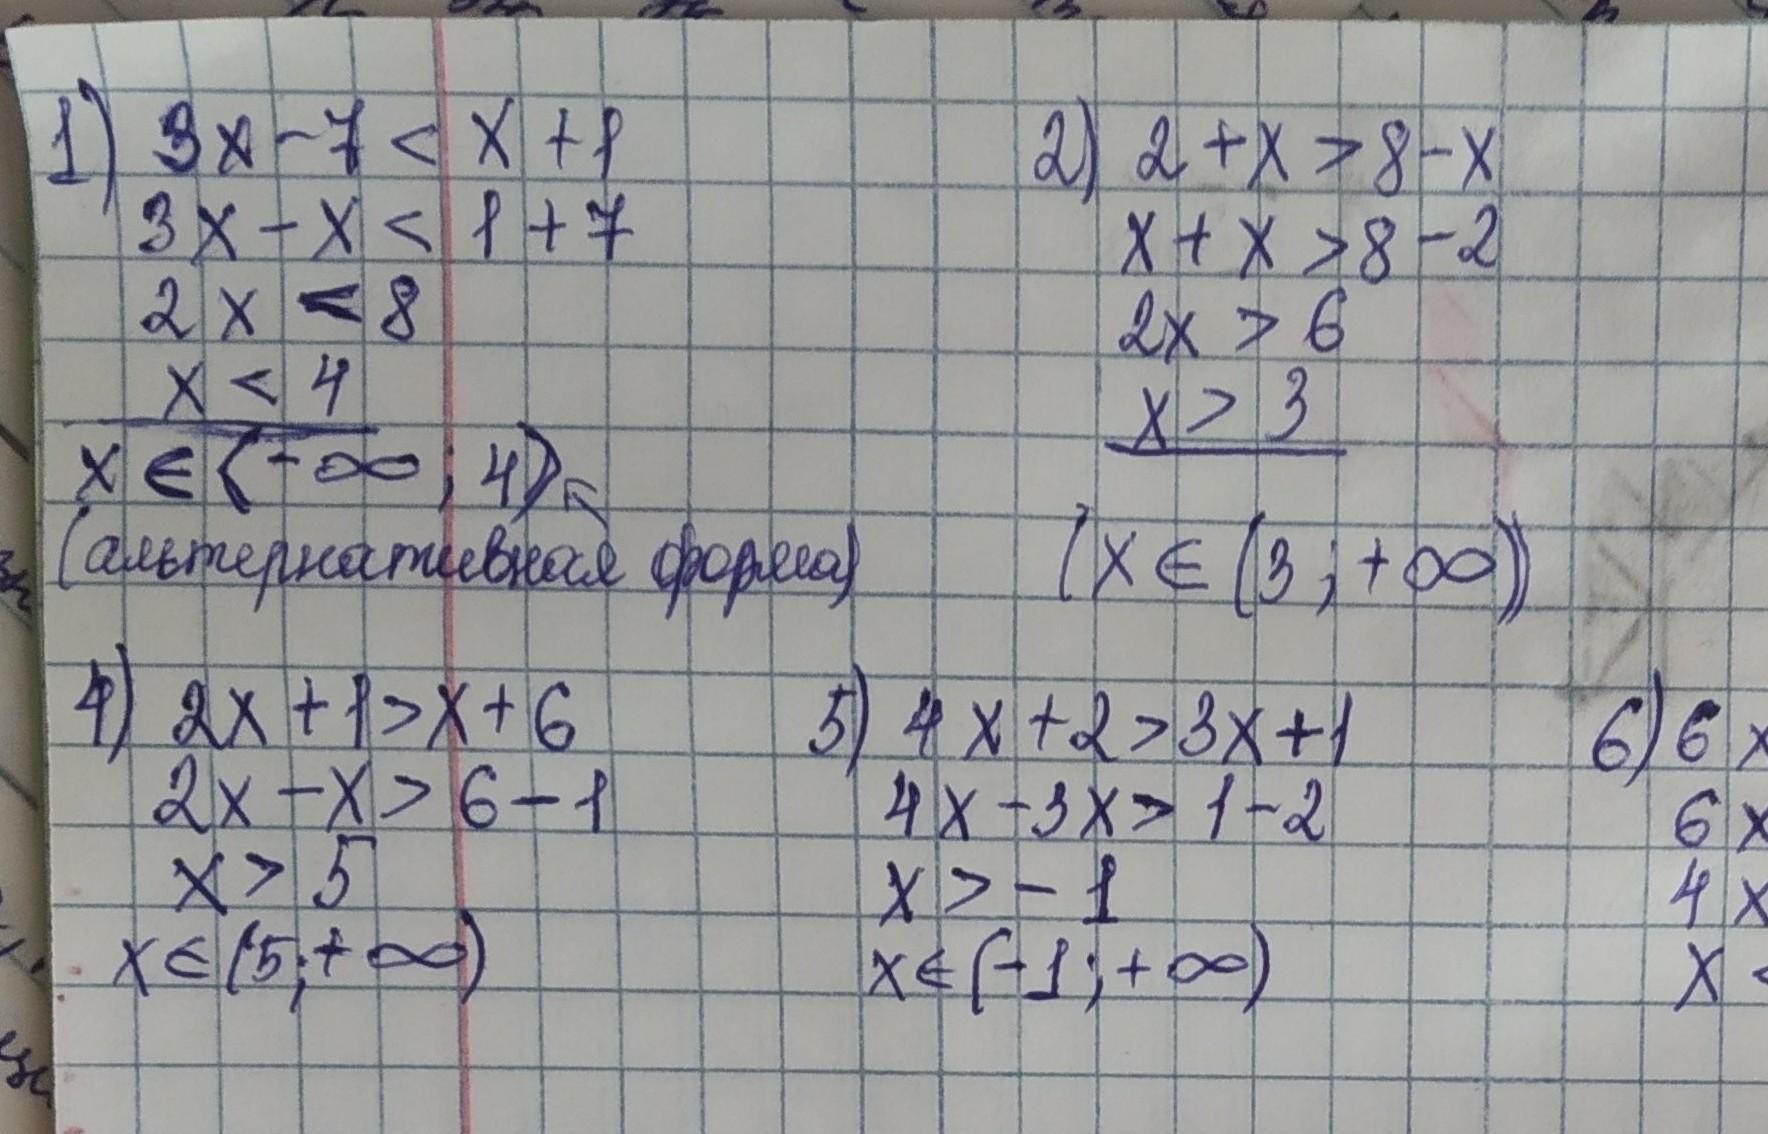 1) 3x - 7 < x + 1
3x - x < 1 + 7
2x < 8
x < 4
x ∈ (-∞; 4)
(альтернативная форма)
2) 2 + x > 8 - x
x + x > 8 - 2
2x > 6
x > 3
(x ∈ (3; +∞))
4) 2x + 1 > x + 6
2x - x > 6 - 1
x > 5
x ∈ (5; +∞)
5) 4x + 2 > 3x + 1
4x - 3x > 1 - 2
x > -1
x ∈ (-1; +∞)
6) 6x
6x
4x
x <